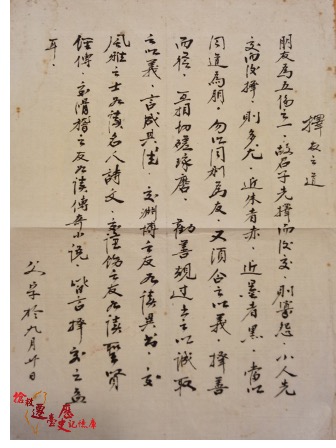 擇友之道
朋友為五倫之一，故君子先擇而後交，則寡怨，小人先
交而後擇，則多尤，近朱者赤，近墨者黑，當以
同道為朋，勿以同利為友，又須合之以義，擇善
而從，互相切磋琢磨，勸善規過，交之以誠，取
之以義，言成其德，交淵博友如讀異書，交
風雅之士如讀名人詩文，交謹飭之友如讀聖賢
經傳，交滑稽之友如讀傳奇小說，皆言擇友之益
耳。
父字於九月廿日
搶救遷臺歷史記憶庫